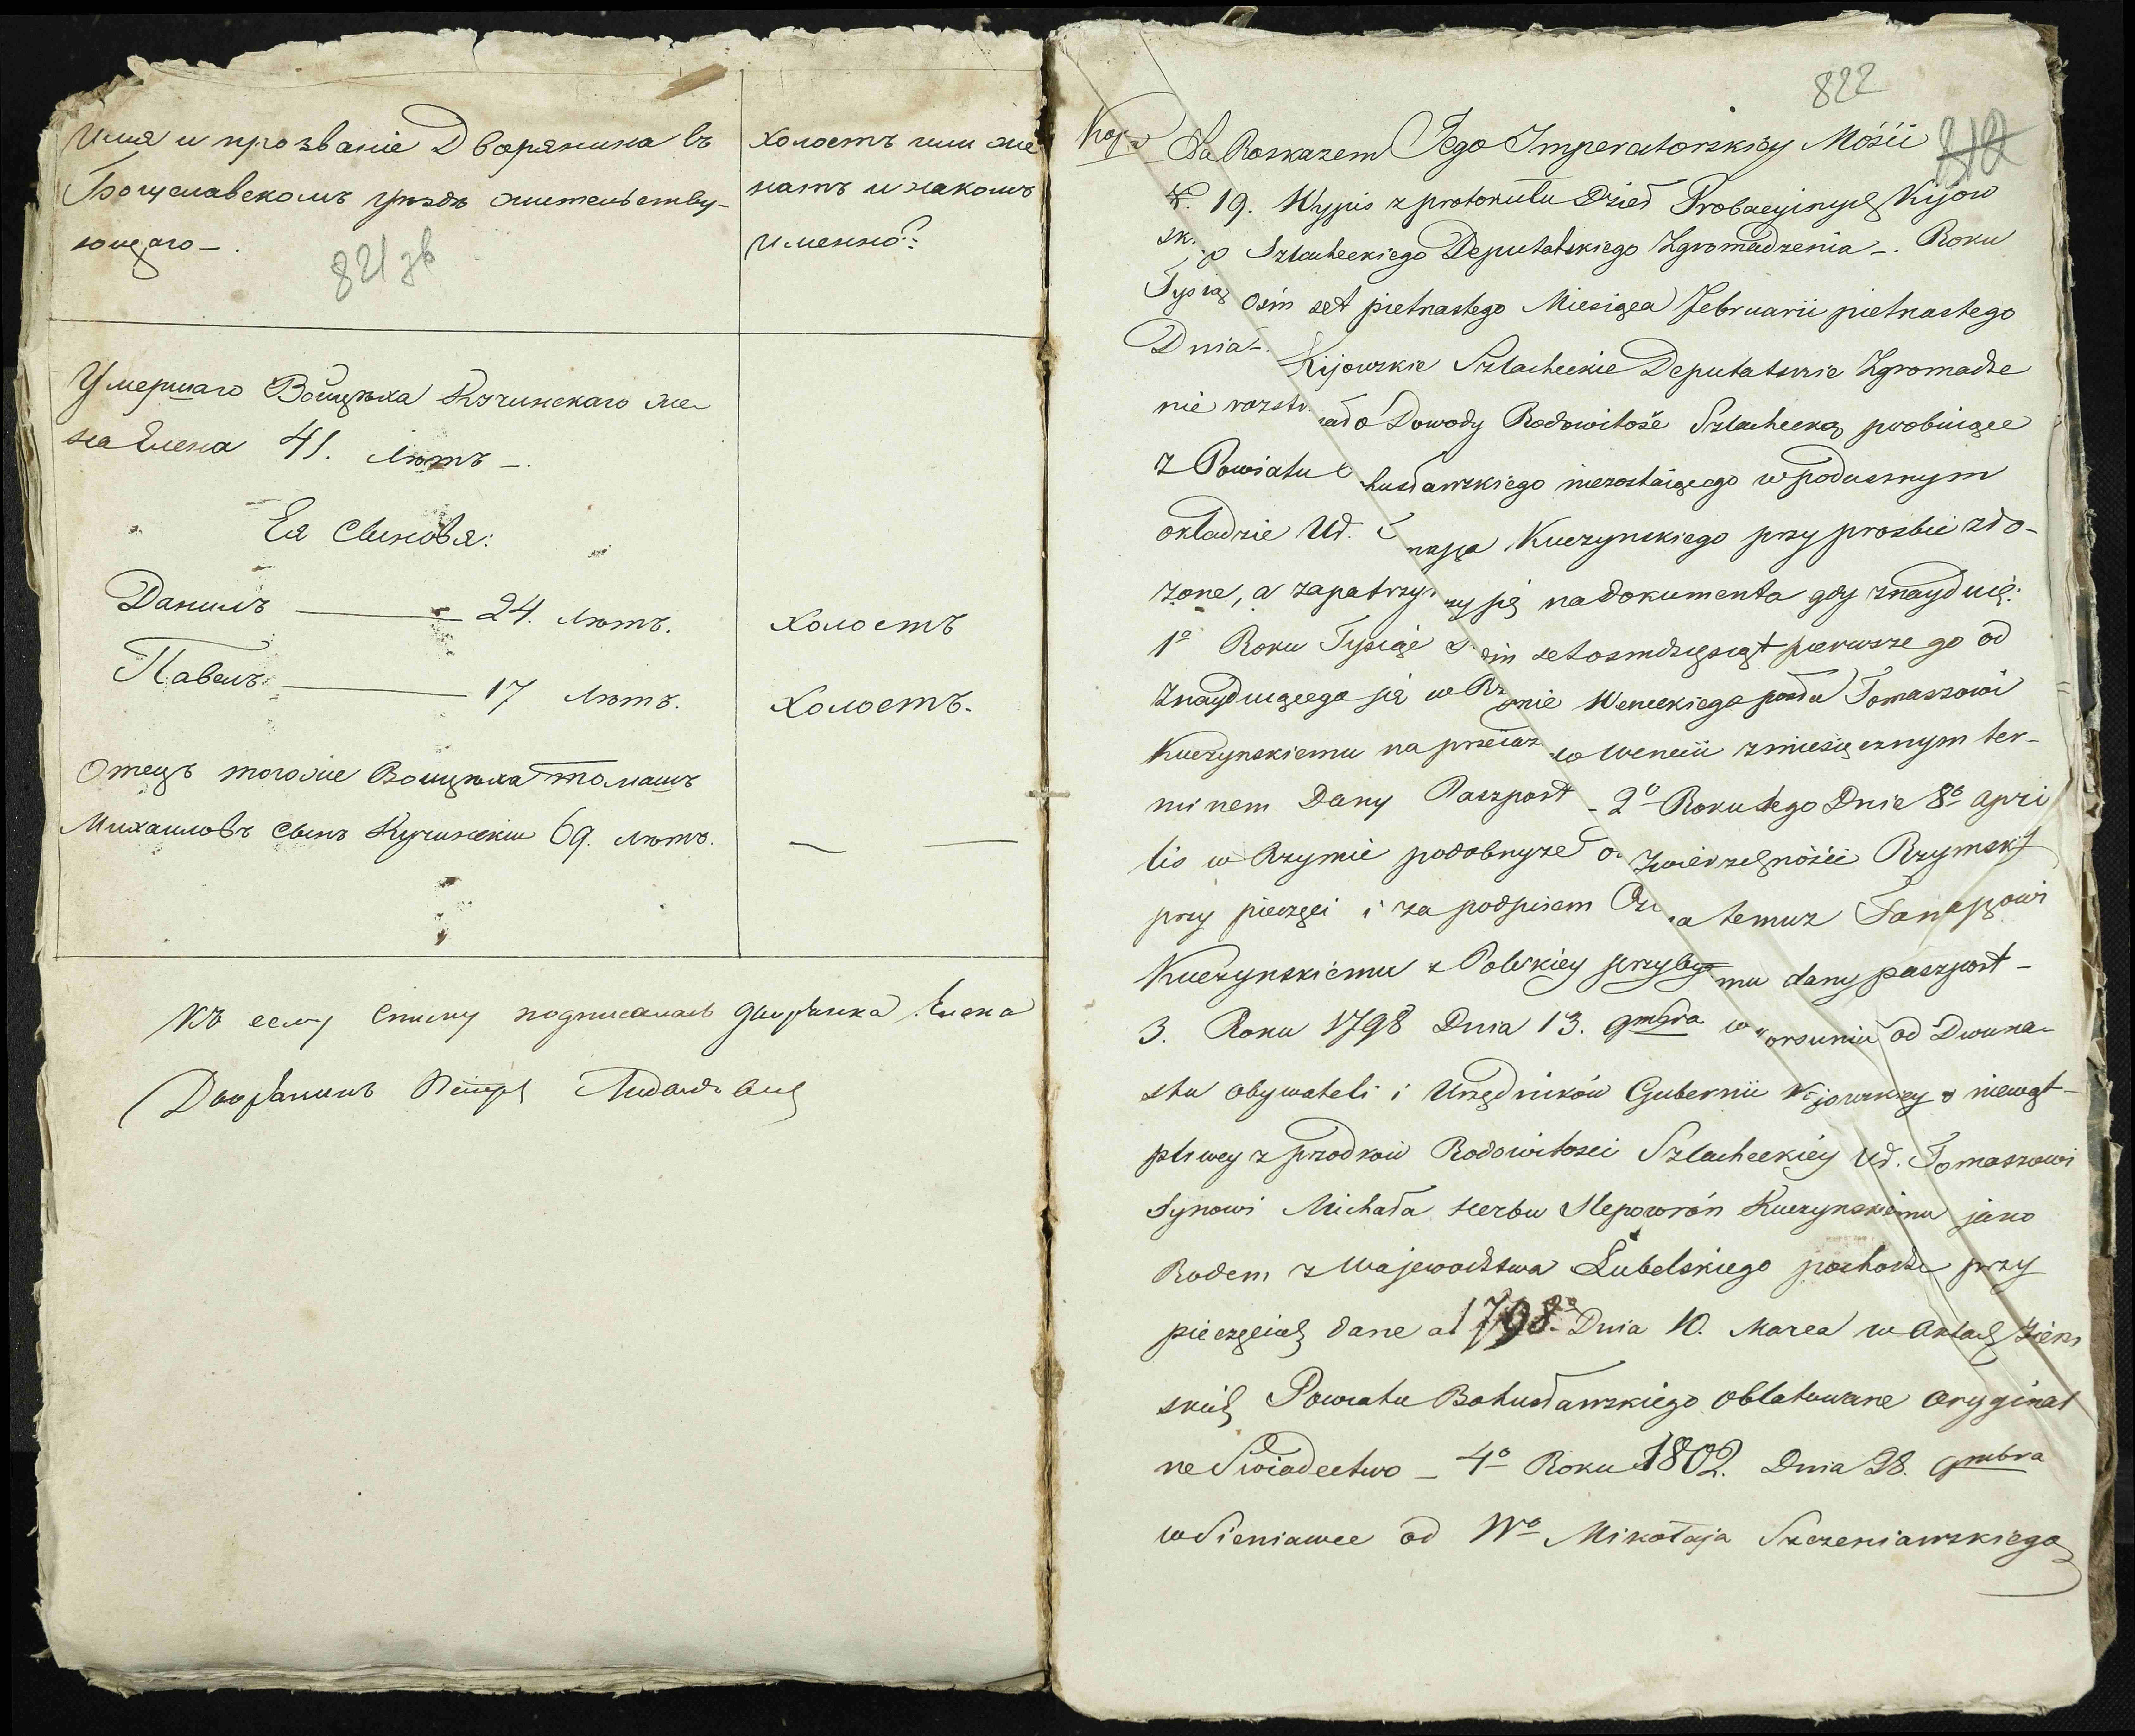 Имя и прозваніе Дворянина въ
Богуславскомъ уѣздѣ жительству-
ющаго –.
821 зв
холостъ или же
натъ и на комъ
именно:
Умершаго Войцѣха Кучинскаго же
на Елена 41. лѣтъ –.
Ея Сыновья:
Данилъ 24. лѣтъ. холостъ
Павелъ 17 лѣтъ. холостъ.
Отецъ тогоже Войцѣха Томашъ
Михайловъ сынъ Кучинскій 69. лѣтъ.
Къ сему списку подписалась дворянка Елена
Дворянинъ Петръ
822
Kopia
Za Roskazem Jego Imperatorskiey Mości
N. 19. Wypis z protokułu Dzieł Probacyinych Kijow
sk. o Szlacheckiego Deputatskiego Zgromadzenia –. Roku
Tysiąc Ośm set pietnastego Miesiąca Februarii pietnastego
Dnia –. Kijowskie Szlacheckie Deputatskie Zgromadze
nie rozstr ało Dowody Rodowitość Szlachecką probuiące
z Powiatu husławskiego niezostaiącego w podusznym
okładzie Ud. Kuczynskiego przy prozbie zło-
żone, a zapatrzy zy się na dokumenta gdy znayduię:
1º Roku Tysiąc dm set osmdzięsiąt pierwszego od
Znayduiącego się w Rz mie Weneckiego posła Tomaszowi
Kuczynskiemu na przeiazd w Wenecii zmiesięcznym ter-
minem Dany Paszport – 2º Roku tego Dnia 8º Apri
lis w Rzymie podobnyże o zwierzchności Rzymsk
przy pieczęci i za podpisem a temuz
Kuczynskiemu z Polskiey przyby mu dany paszport –
3. Roku 1798 Dnia 13. 9mbra w orsuniu od Dwuna-
stu obywateli i Urzędników Gubernii Kijowskiey o niewąt-
pliwey z przodków Rodowitosci Szlacheckiey Ud. Tomaszowi
Synowi Michała herbu Slepowrón Kuczynskiemu jako
Rodem z Wajewodztwa Lubelskiego pochodz przy
pieczęciach dane a 1798º Dnia 10. Marca w Aktach ziem
skich Powiatu Bohusławskiego oblatowane oryginal
ne Swiadectwo – 4º Roku 1802. Dnia 28. 9mbra
w Sieniawce od Wº Mikołaja Szczeniawskiego